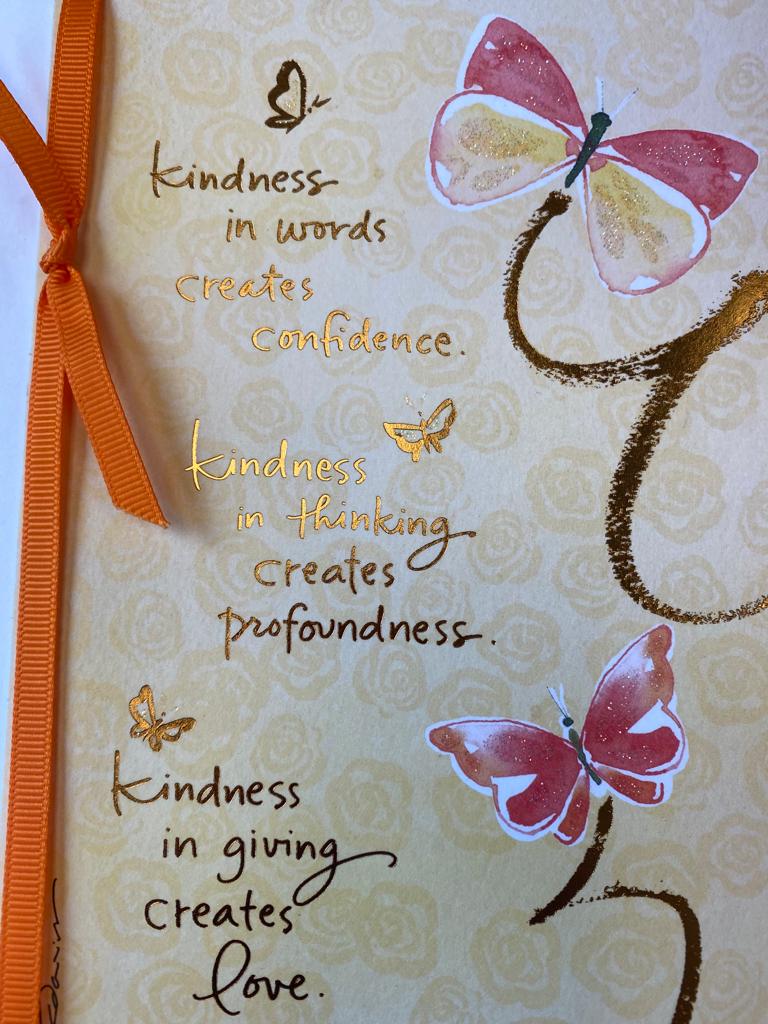 kindness
in words
creates
confidence.
kindness
in thinking
creates
profoundness.
kindness
in giving
creates
love.